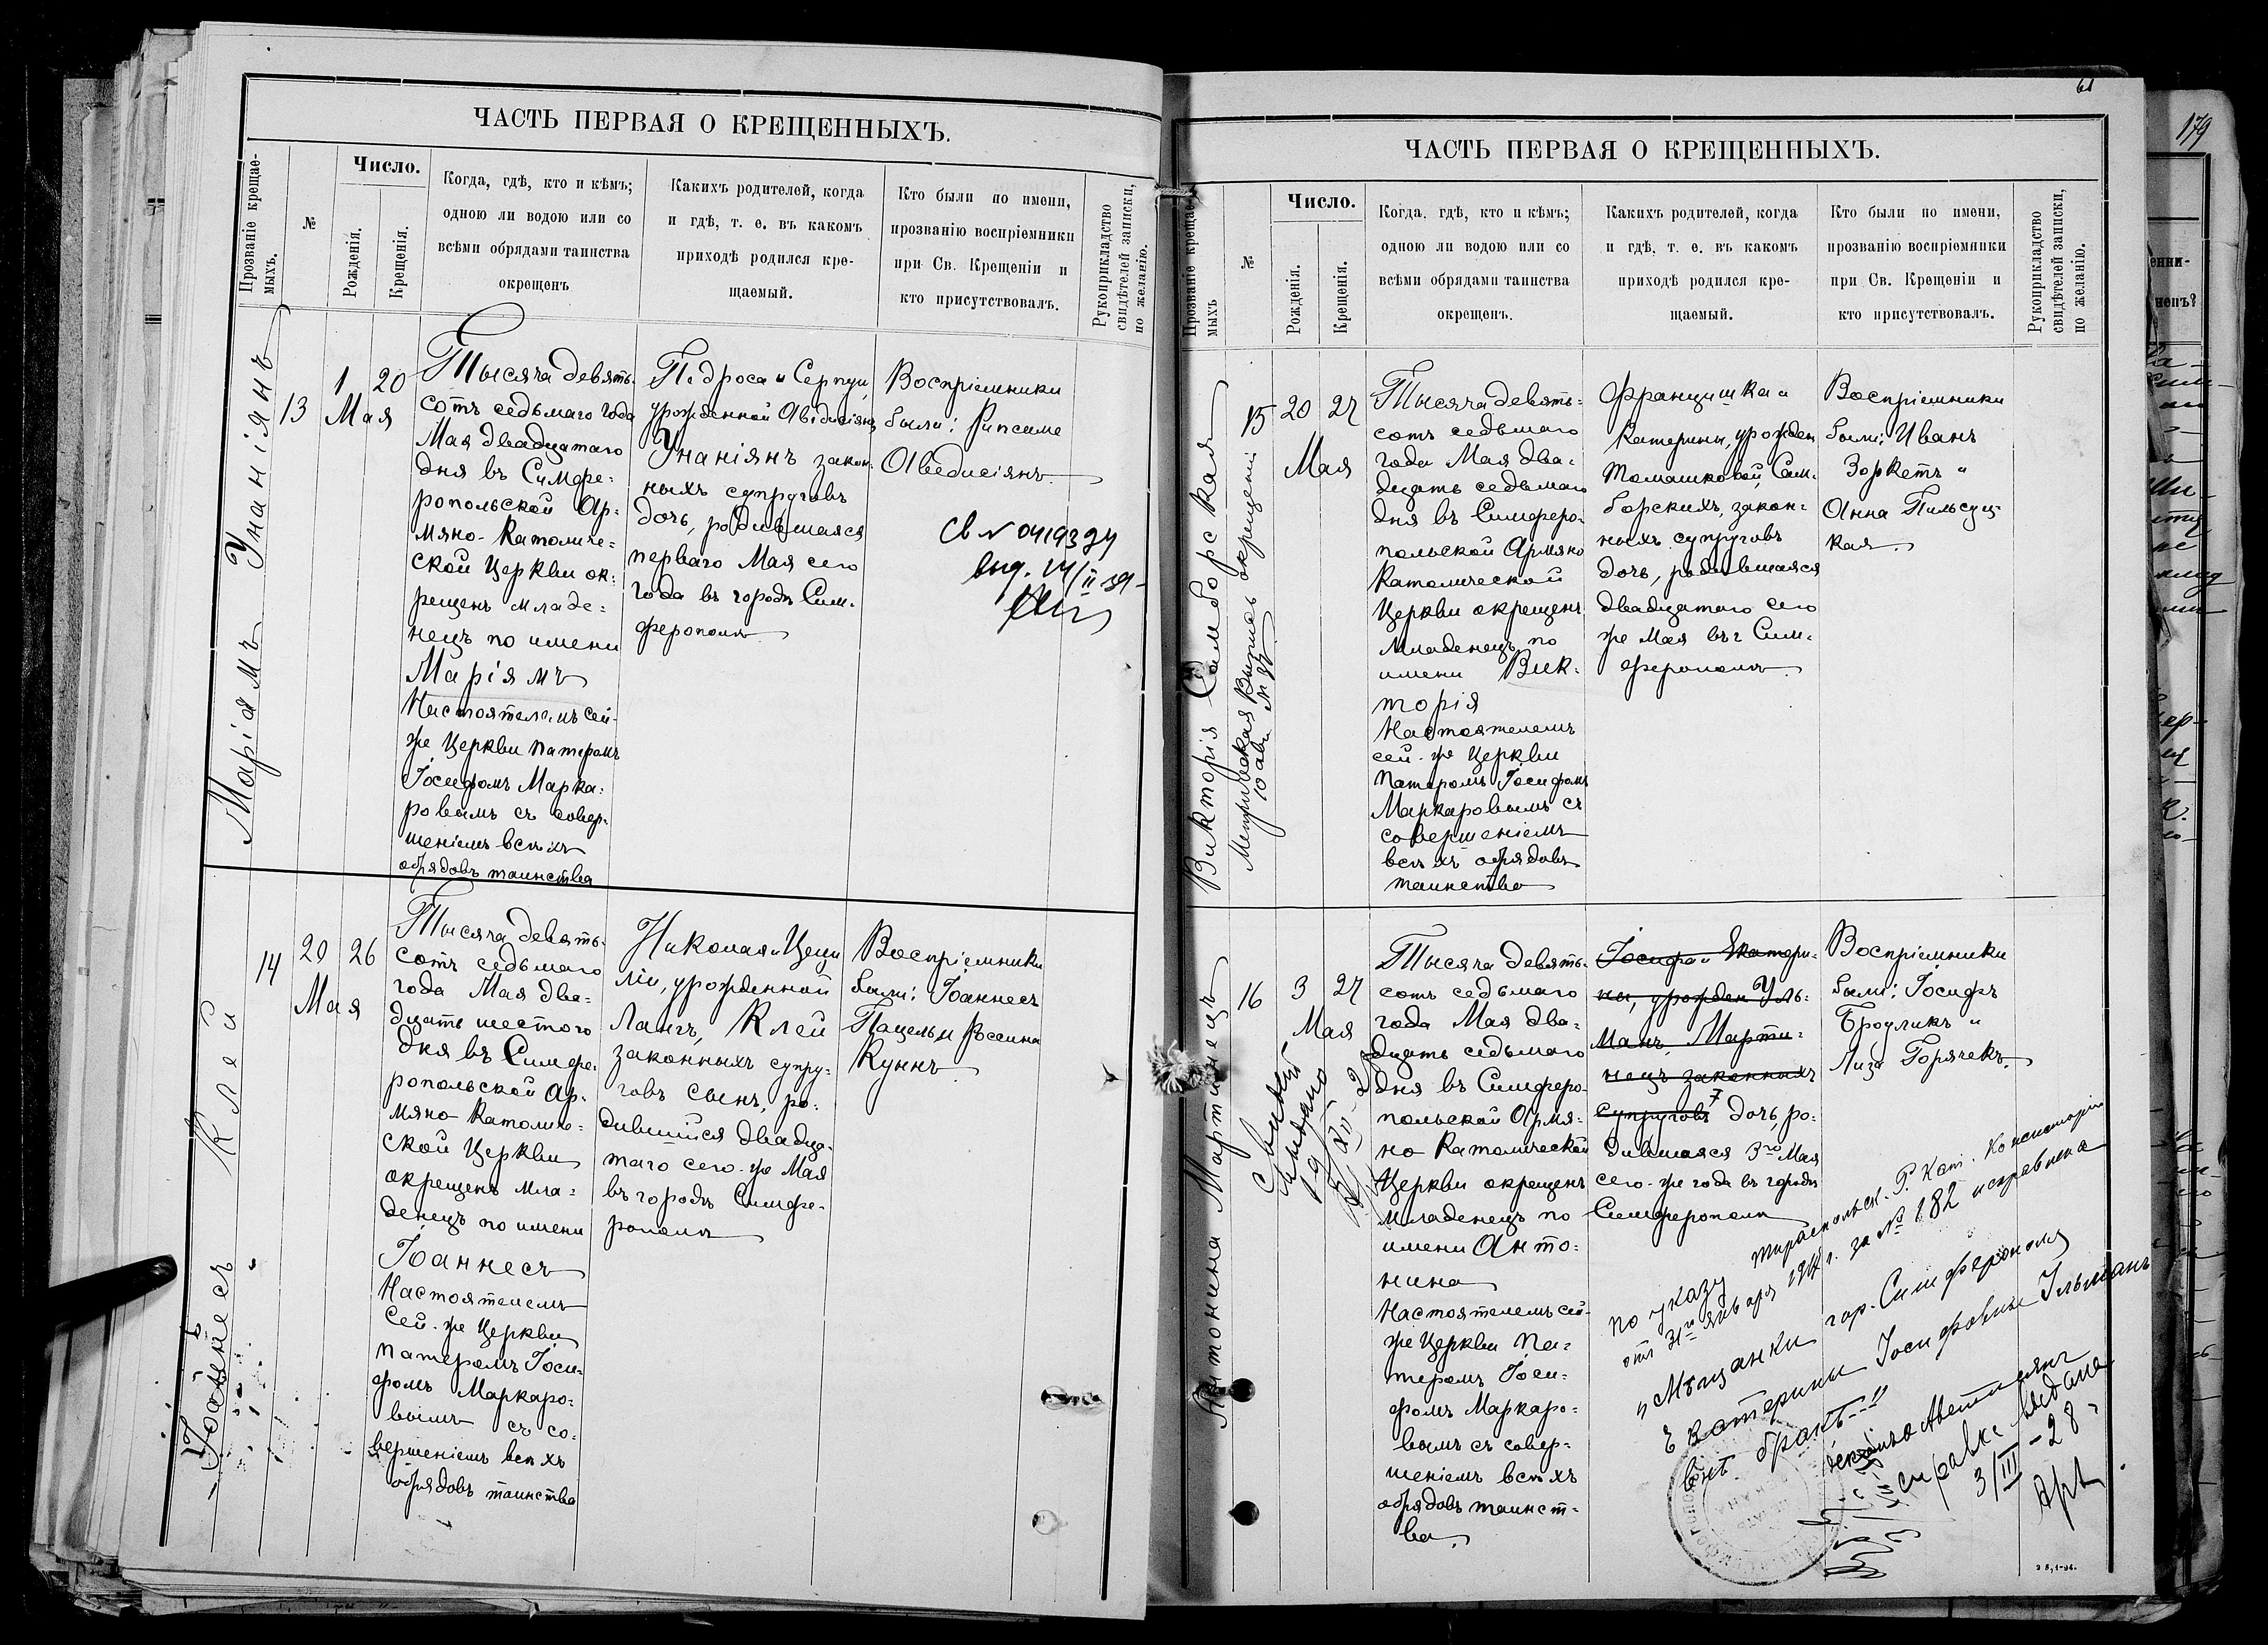 ЧАСТЬ ПЕРВАЯ О КРЕЩЕННЫХЪ.
Прозваніе крещае-
мыхъ.
№
Число.
Рожденія.
Крещенія.
Когда, гдѣ, кто и кѣмъ;
одною ли водою или со
всѣми обрядами таинства
окрещенъ
Какихъ родителей, когда
и гдѣ, т. е. въ какомъ
приходѣ родился кре-
щаемый.
Кто были по имени,
прозванію воспріемники
при Св. Крещеніи и
кто присутствовалъ.
Рукоприкладство
свидѣтелей записки,
по желанію.
Маріамъ Унаніянъ
13
1 20
Мая
Тысяча девять-
сотъ седьмаго года
Мая двадцатаго
дня въ Симфе-
ропольской Ар-
мяно-Католиче-
ской Церкви ок-
рещенъ младе-
нецъ по имени
Маріямъ
Настоятелемъ сей-
же Церкви Патеромъ
Іосифомъ Марка-
ровымъ съ совер-
шеніемъ всѣхъ
обрядовъ таинства
Педроса и Серпуи,
урожденной Аведисіянъ
Унаніянъ закон-
ныхъ супруговъ
дочь, родившаяся
перваго Мая сего
года въ городѣ Сим-
ферополѣ
Воспріемники
были: Рипсиме
Аведисіянъ
Св № 0419394
выд. 14/II 39
14
20 26
Мая
Іоаннесъ Клей
Тысяча девять-
сотъ седьмаго
года Мая два-
дцать шестого
дня въ Симфе-
ропольской Ар-
мяно Католиче-
ской Церкви
окрещенъ мла-
денецъ по имени
Іоаннесъ
Настоятелемъ
Сей-же Церкви
патеромъ Іоси-
фомъ Маркаро-
вымъ съ со-
вершеніемъ всѣхъ
обрядовъ таинства
Николая и Цеци
ліи, урожденной
Лангъ, Клей
законныхъ супру-
говъ сынъ, ро-
дившийся двадца-
таго сего-же Мая
въ городѣ Симфе-
рополѣ
Воспріемники
были: Іоаннесъ
Пацель и Россина
Куннъ
61
ЧАСТЬ ПЕРВАЯ О КРЕЩЕННЫХЪ.
Прозваніе крещае-
мыхъ
№
Число.
Рожденія.
Крещенія.
Когда, гдѣ, кто и кѣмъ;
одною ли водою или со
всѣми обрядами таинства
окрещенъ.
Какихъ родителей, когда
и гдѣ, т. е. въ какомъ
приходѣ родился кре-
щаемый.
Кто были по имени,
прозванію воспріемники
при Св. Крещеніи и
кто присутствовалъ.
Рукоприкладство
свидѣтелей записки,
по желанію.
Викторія Самборская
Метрическая Выпись о крещеніи
15
20 27
Мая
Тысяча девять-
сотъ седьмаго
года Мая два-
дцать седьмаго
дня въ Симферо-
польской Армяно
Католической
Церкви окрещенъ
младенецъ по
имени Вик-
торія
Настоятелемъ
сей-же Церкви
Патеромъ Іосифомъ
Маркаровымъ съ
совершеніемъ
всѣхъ обрядовъ
таинства
Францишка и
Катерины, урожден
Томашковой, Сам-
борскихъ, закон-
ныхъ супруговъ
дочь, родившаяся
двадцатаго сего
же Мая въ г Сим-
ферополѣ
Воспріемники
были: Иванъ
Зоркетъ и
Анна Пильсуц-
кая.
Антонина Мартинецъ
16
3 27
Мая
Тысяча девять-
сотъ седьмаго
года Мая два-
дцать седьмаго
дня въ Симферо-
польской Армя-
но Католической
Церкви окрещенъ
младенецъ по
имени Анто-
нина
Настоятелемъ сей-
же Церкви Па-
теромъ Іоси-
фомъ Маркаро-
вымъ съ совер-
шеніемъ всѣхъ
обрядовъ таинст-
ва.
Іосифа и Екатери-
ны, урожден Уль-
манъ, Марти-
нецъ законныхъ
супруговъ дочь, ро-
дившаяся 3го Мая
сего-же года въ городѣ
Симферополѣ
Воспріемники
были: Іосифъ
Броуликъ и
Лиза Горячекъ.
по указу Тираспольск. Р. Кат. Консисторіи
за № 182 исправлена
"Мѣщанки гор. Симферополя
Екатерины Іосифовны Ульманъ
внѣ брака"
справка выдана
3/III-28
179